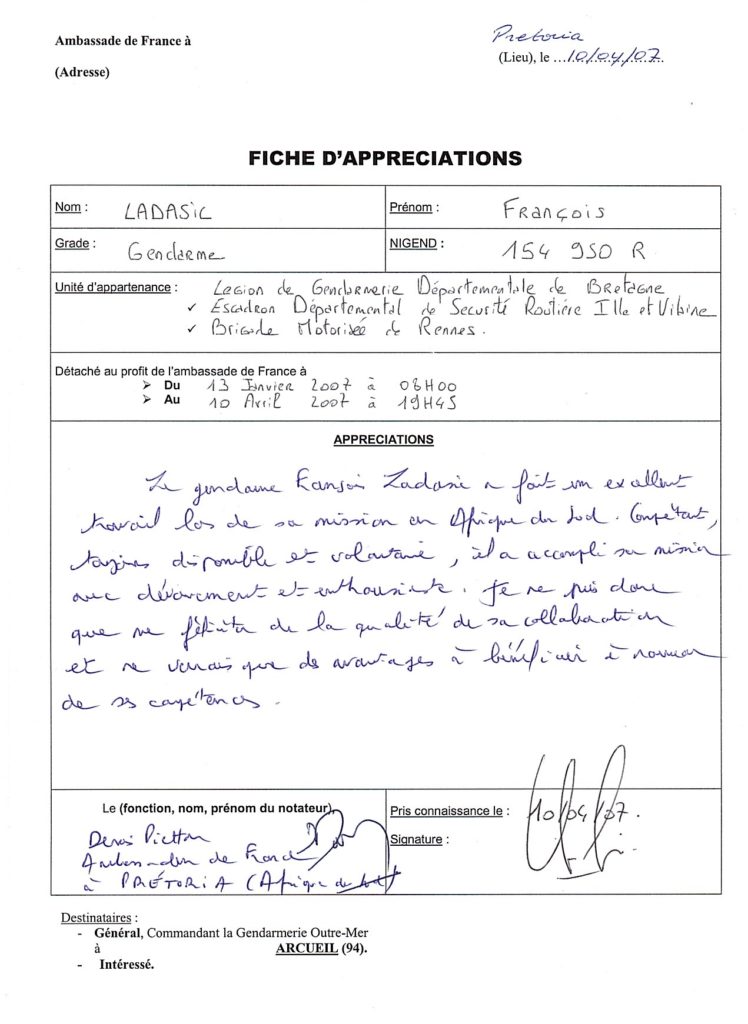 Ambassade de France à
Pretoria
(Lieu), le ...10/04/07.
(Adresse)
FICHE D'APPRECIATIONS
Nom : LADASIC
Prénom : François
Grade : Gendarme
NIGEND : 154 950 R
Unité d'appartenance : Legion de Gendarmerie Départementale de Bretagne
✓ Escadron Départemental de Securité Routière Ille et Vilaine
✓ Brigade Motorisée de Rennes.
Détaché au profit de l'ambassade de France à
➢ Du 13 Janvier 2007 à 08H00
➢ Au 10 Avril 2007 à 19H45
APPRECIATIONS
Le gendarme François Ladasic a fait un excellent
travail lors de sa mission en Afrique du Sud. Compétent,
toujours disponible et volontaire, il a accompli sa mission
avec dévouement et enthousiasme. Je ne puis donc
que me féliciter de la qualité de sa collaboration
et ne verrais que des avantages à bénéficier à nouveau
de ses compétences.
Le (fonction, nom, prénom du notateur)
Denis Pietton
Ambassadeur de France
à PRÉTORIA (Afrique du Sud)
Pris connaissance le : 10/04/07.
Signature :
Destinataires :
- Général, Commandant la Gendarmerie Outre-Mer
à ARCUEIL (94).
- Intéressé.